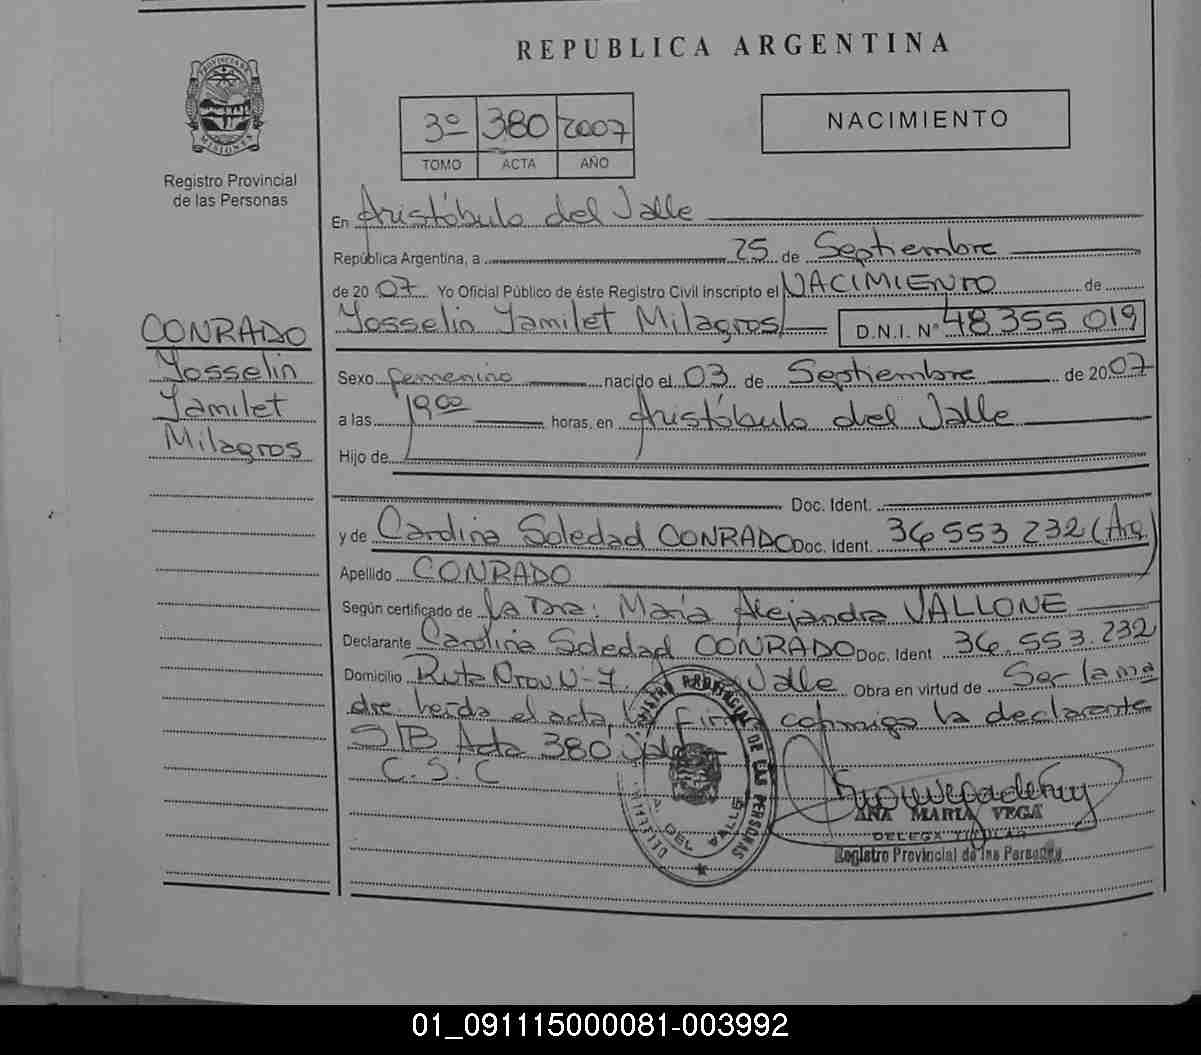 REPUBLICA ARGENTINA
PROVINCIA DE
MISIONES
Registro Provincial
de las Personas
3º 380 2007
TOMO ACTA AÑO
NACIMIENTO
En Aristóbulo del Valle
República Argentina, a 25 de Septiembre
de 20 07 Yo Oficial Público de éste Registro Civil inscripto el NACIMIENTO de
Yosselin Yamilet Milagros D.N.I. Nº 48 355 019
CONRADO
Yosselin
Yamilet
Milagros
Sexo femenino nacido el 03 de Septiembre de 20 07
a las 19 00 horas, en Aristóbulo del Valle
Hijo de
Doc. Ident.
y de Carolina Soledad CONRADO Doc. Ident. 36 553 232 (Arg)
Apellido CONRADO
Según certificado de La Dra: María Alejandra VALLONE
Declarante Carolina Soledad CONRADO Doc. Ident 36.553.232
Domicilio Ruta Prov Nº 7. Valle Obra en virtud de Ser la ma
dre. leída el acta, la firma conmigo la declarante
S/B Acta 380
C.S.C
REGISTRO PROVINCIAL DE LAS PERSONAS
A. DEL VALLE
ANA MARIA VEGA
DELEGA TITULAR
Registro Provincial de las Personas
01_091115000081-003992